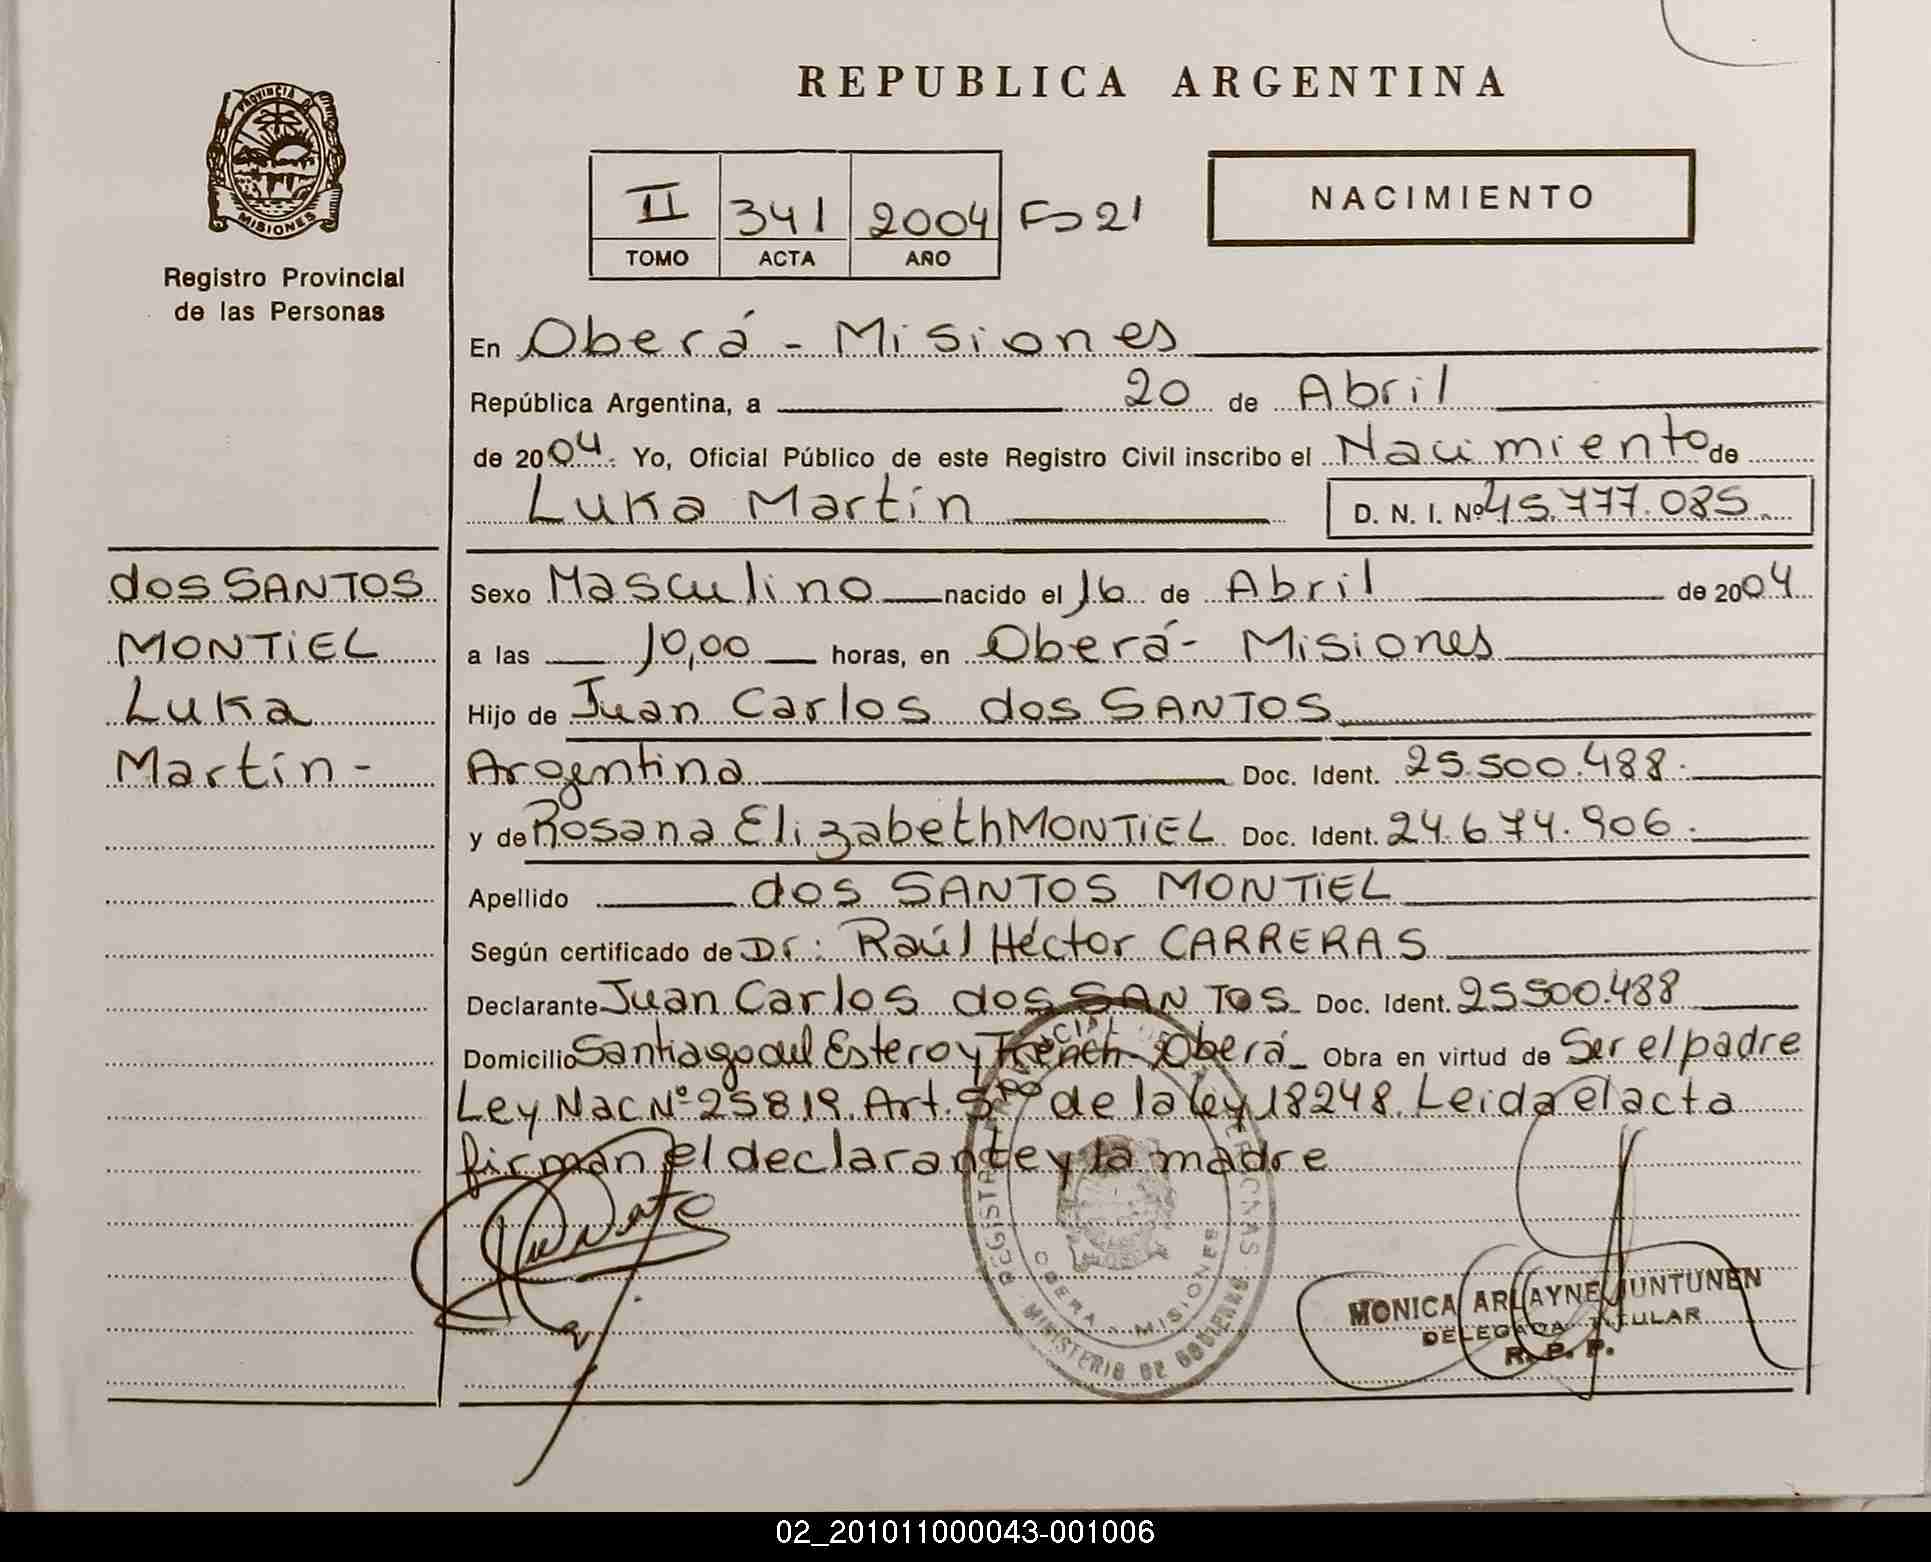 REPUBLICA ARGENTINA
PROVINCIA DE
MISIONES
Registro Provincial
de las Personas
II 341 2004 Fs 21
TOMO ACTA AÑO
NACIMIENTO
En Oberá - Misiones
República Argentina, a 20 de Abril
de 2004. Yo, Oficial Público de este Registro Civil inscribo el Nacimiento de
Luka Martín D. N. I. Nº 45.777.085
dos SANTOS
MONTIEL
Luka
Martín -
Sexo Masculino nacido el 16 de Abril de 2004
a las 10,00 horas, en Oberá - Misiones
Hijo de Juan Carlos dos SANTOS
Argentina Doc. Ident. 25.500.488.
y de Rosana Elizabeth MONTIEL Doc. Ident. 24.674.906.
Apellido dos SANTOS MONTIEL
Según certificado de Dr: Raúl Héctor CARRERAS
Declarante Juan Carlos dos SANTOS Doc. Ident. 25500.488
Domicilio Santiago del Estero y French - Oberá Obra en virtud de Ser el padre
Ley Nac Nº 25819. Art. 5to de la ley 18248. Leida el acta
firman el declarante y la madre
OBERA - MISIONES
MINISTERIO DE GOBIERNO
MONICA ARLAYNE JUNTUNEN
DELEGADA TITULAR
R. P. P.
02_201011000043-001006